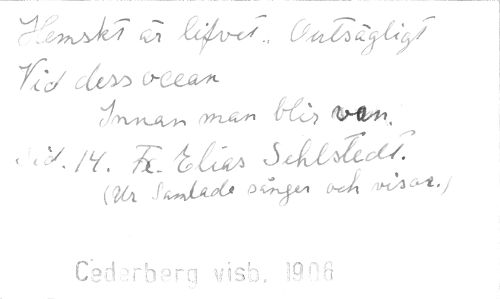 Hemskt är lifvet. Outsägligt
Vid dess ocean
Innan man blir van.
Sid. 14. Fr. Elias Sehlstedt.
(Ur Samlade sånger och visor.)
Cederberg visb. 1906